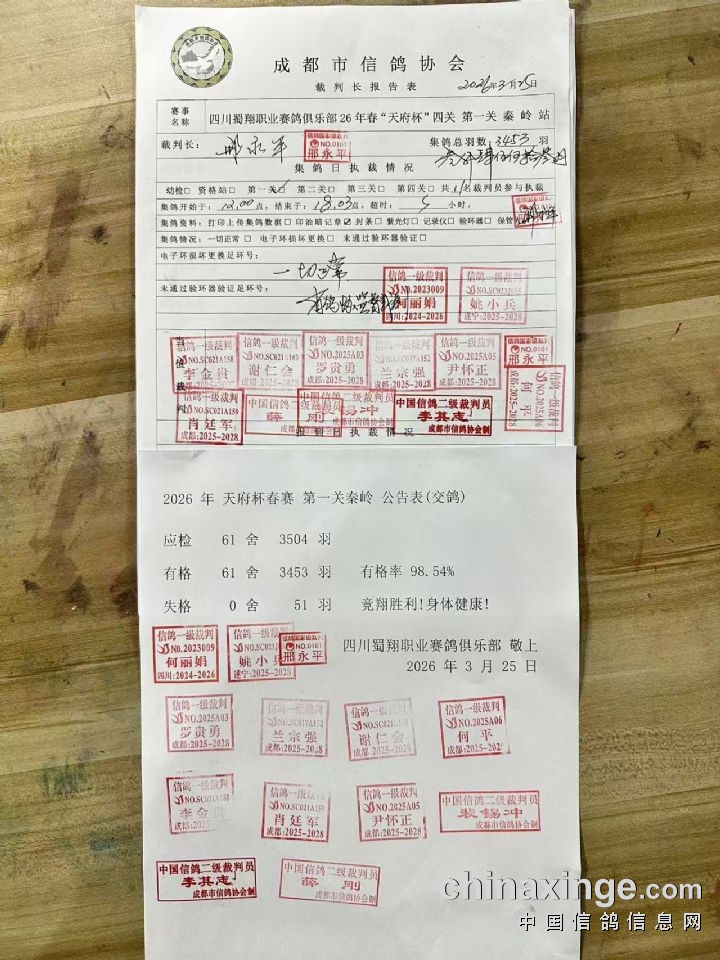 成都市信鸽协会
裁判长报告表
2026年3月25日
赛事名称
四川蜀翔职业赛鸽俱乐部26年春“天府杯”四关 第一关 秦岭站
裁判长：邢永平
信鸽国家级裁判
NO.0101
邢永平
集鸽总羽数：3453 羽
集鸽日执裁情况
幼检□ 资格站□ 第一关 第二关□ 第三关□ 第四关□ 共 名裁判员参与执裁
集鸽开始于：12.00点，结束于：18.03点，超时：5小时。
集鸽资料：打印上传集鸽数据□ 印油暗记章☑ 封条□ 紫光灯□ 记录仪□ 验环器□ 保管
集鸽情况：一切正常□ 电子环损坏更换□ 未通过验环器验证□
电子环损坏更换足环号：
一切正常
未通过验环器验证足环号：
信鸽一级裁判
NO.2023009
何丽娟
四川：2024-2026
信鸽一级裁判
姚小兵
遂宁：2025-2028
信鸽一级裁判
NO.SC021A158
李金贵
成都：2025-2028
信鸽一级裁判
NO.SC021A160
谢仁会
成都：2025-2028
信鸽一级裁判
NO.2025A03
罗贵勇
成都：2025-2028
信鸽一级裁判
兰宗强
成都：2025-2028
信鸽一级裁判
NO.2025A05
尹怀正
成都：2025-2028
信鸽国家级裁判
NO.0101
邢永平
信鸽一级裁判
NO.2025A06
何平
成都：2025-2028
信鸽一级裁判
NO.SC021A159
肖廷军
成都：2025-2028
中国信鸽二级裁判员
薛刚
中国信鸽二级裁判员
锡冲
成都市信鸽协会制
中国信鸽二级裁判员
李其志
成都市信鸽协会制
报到日执裁情况
2026 年 天府杯春赛 第一关秦岭 公告表(交鸽)
应检 61 舍 3504 羽
有格 61 舍 3453 羽 有格率 98.54%
失格 0 舍 51 羽 竟翔胜利!身体健康!
四川蜀翔职业赛鸽俱乐部 敬上
2026 年 3 月 25 日
信鸽一级裁判
NO.2023009
何丽娟
四川：2024-2026
信鸽一级裁判
姚小兵
遂宁：2025-2028
信鸽国家级裁判
NO.0101
邢永平
信鸽一级裁判
NO.2025A03
罗贵勇
成都：2025-2028
信鸽一级裁判
兰宗强
成都：2025-2028
信鸽一级裁判
谢仁会
成都：2025-2028
信鸽一级裁判
NO.2025A06
何平
成都：2025-2028
信鸽一级裁判
NO.SC021A158
李金贵
成都：2025-2028
信鸽一级裁判
NO.SC021A159
肖廷军
成都：2025-2028
信鸽一级裁判
NO.2025A05
尹怀正
成都：2025-2028
中国信鸽二级裁判员
裴锡冲
成都市信鸽协会制
中国信鸽二级裁判员
李其志
成都市信鸽协会制
中国信鸽二级裁判员
薛刚
成都市信鸽协会制
chinaxinge.com
中国信鸽信息网